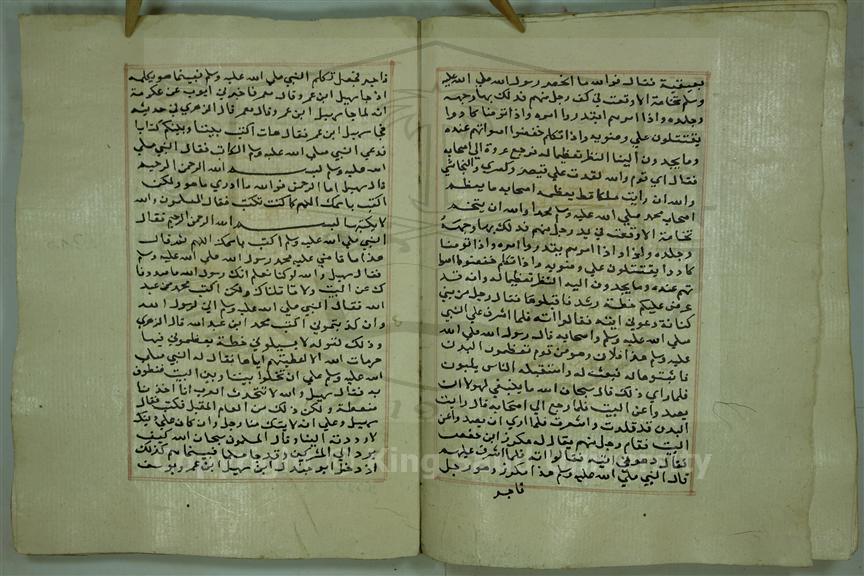 بعينيه فقال فوالله ما انخم رسول الله صلى الله عليه
وسلم نخامة الا وقعت في كف رجل منهم فدلك بها وجهه
وجلده واذا امرهم ابتدروا امره واذا توضا كادوا
يقتتلون على وضويه واذا تكلم خفضوا اصواتهم عنده
وما يحدون الينا النظر تعظيما له فرجع عروة الى اصحابه
فقال اي قوم والله لقد وفدت على قيصر وكسرى والنجاشي
والله ان رايت ملكا قط يعظمه اصحابه ما يعظم
اصحاب محمد صلى الله عليه وسلم محمدا والله ان يتنخم
نخامة الا وقعت في يد رجل منهم فدلك بها وجهه
وجلده واذا امرهم ابتدروا امره واذا توضا
كادوا يقتتلون على وضويه واذا تكلم خفضوا اصوا
تهم عنده وما يحدون اليه النظر تعظيما له وانه قد
عرض عليكم خطة رشد فاقبلوها فقال رجل من بني
كنانة دعوني ايته فقالوا ائته فلما اشرف على النبي
صلى الله عليه وسلم واصحابه قال رسول الله صلى الله
عليه وسلم هذا فلان وهو من قوم يعظمون البدن
فابعثوها له فبعثت له واستقبله الناس يلبون
فلما راى ذلك قال سبحان الله ما ينبغي لهولا ان
يصدوا عن البيت فلما رجع الى اصحابه قال رايت
البدن قد قلدت واشعرت فلما ارى ان يصدوا عن
البيت فقام رجل منهم يقال له مكرز ابن حفص
فقال دعوني ايته فقالوا ائته فلما اشرف عليهم
قال النبي صلى الله عليه وسلم هذا مكرز وهو رجل
فاجر
فاجر فجعل يكلم النبي صلى الله عليه وسلم فبينما هو يكلمه
اذ جا سهيل ابن عمرو قال معمر فاخبرني ايوب عن عكرمة
انه لما جا سهيل ابن عمرو قال معمر قال الزهري في حديثه
فجا سهيل ابن عمرو فقال هات اكتب بيننا وبينكم كتابا
فدعى النبي صلى الله عليه وسلم الكاتب فقال النبي صلى
الله عليه وسلم بسم الله الرحمن الرحيم
قال سهيل اما الرحمن فوالله ما ادري ما هو ولكن
اكتب باسمك اللهم كما كنت تكتب فقال المسلمون والله
لا نكتبها الا بسم الله الرحمن الرحيم فقال
النبي صلى الله عليه وسلم اكتب باسمك اللهم ثم قال
هذا ما قاضى عليه محمد رسول الله صلى الله عليه وسلم
فقال سهيل والله لو كنا نعلم انك رسول الله ما صددنا
ك عن البيت ولا قاتلناك ولكن اكتب محمد ابن عبد
الله فقال النبي صلى الله عليه وسلم اني لرسول الله
وان كذبتموني اكتب محمد ابن عبد الله قال الزهري
وذلك لقوله لا يسيلوني خطة يعظمون فيها
حرمات الله الا اعطيتهم اياها فقال له النبي صلى
الله عليه وسلم على ان تخلوا بيننا وبين البيت فنطوف
به فقال سهيل والله لا تتحدث العرب انا اخذنا
ضغطة ولكن ذلك من العام المقبل فكتب فقال
سهيل وعلى انه لا يتيك منا رجل وان كان على دينك
الا رددته الينا وقال المسلمون سبحان الله كيف
يرد الى المشركين وقد جا مسلما فبينما هم كذلك
اذ دخل ابو جندل ابن سهيل ابن عمرو يوسف